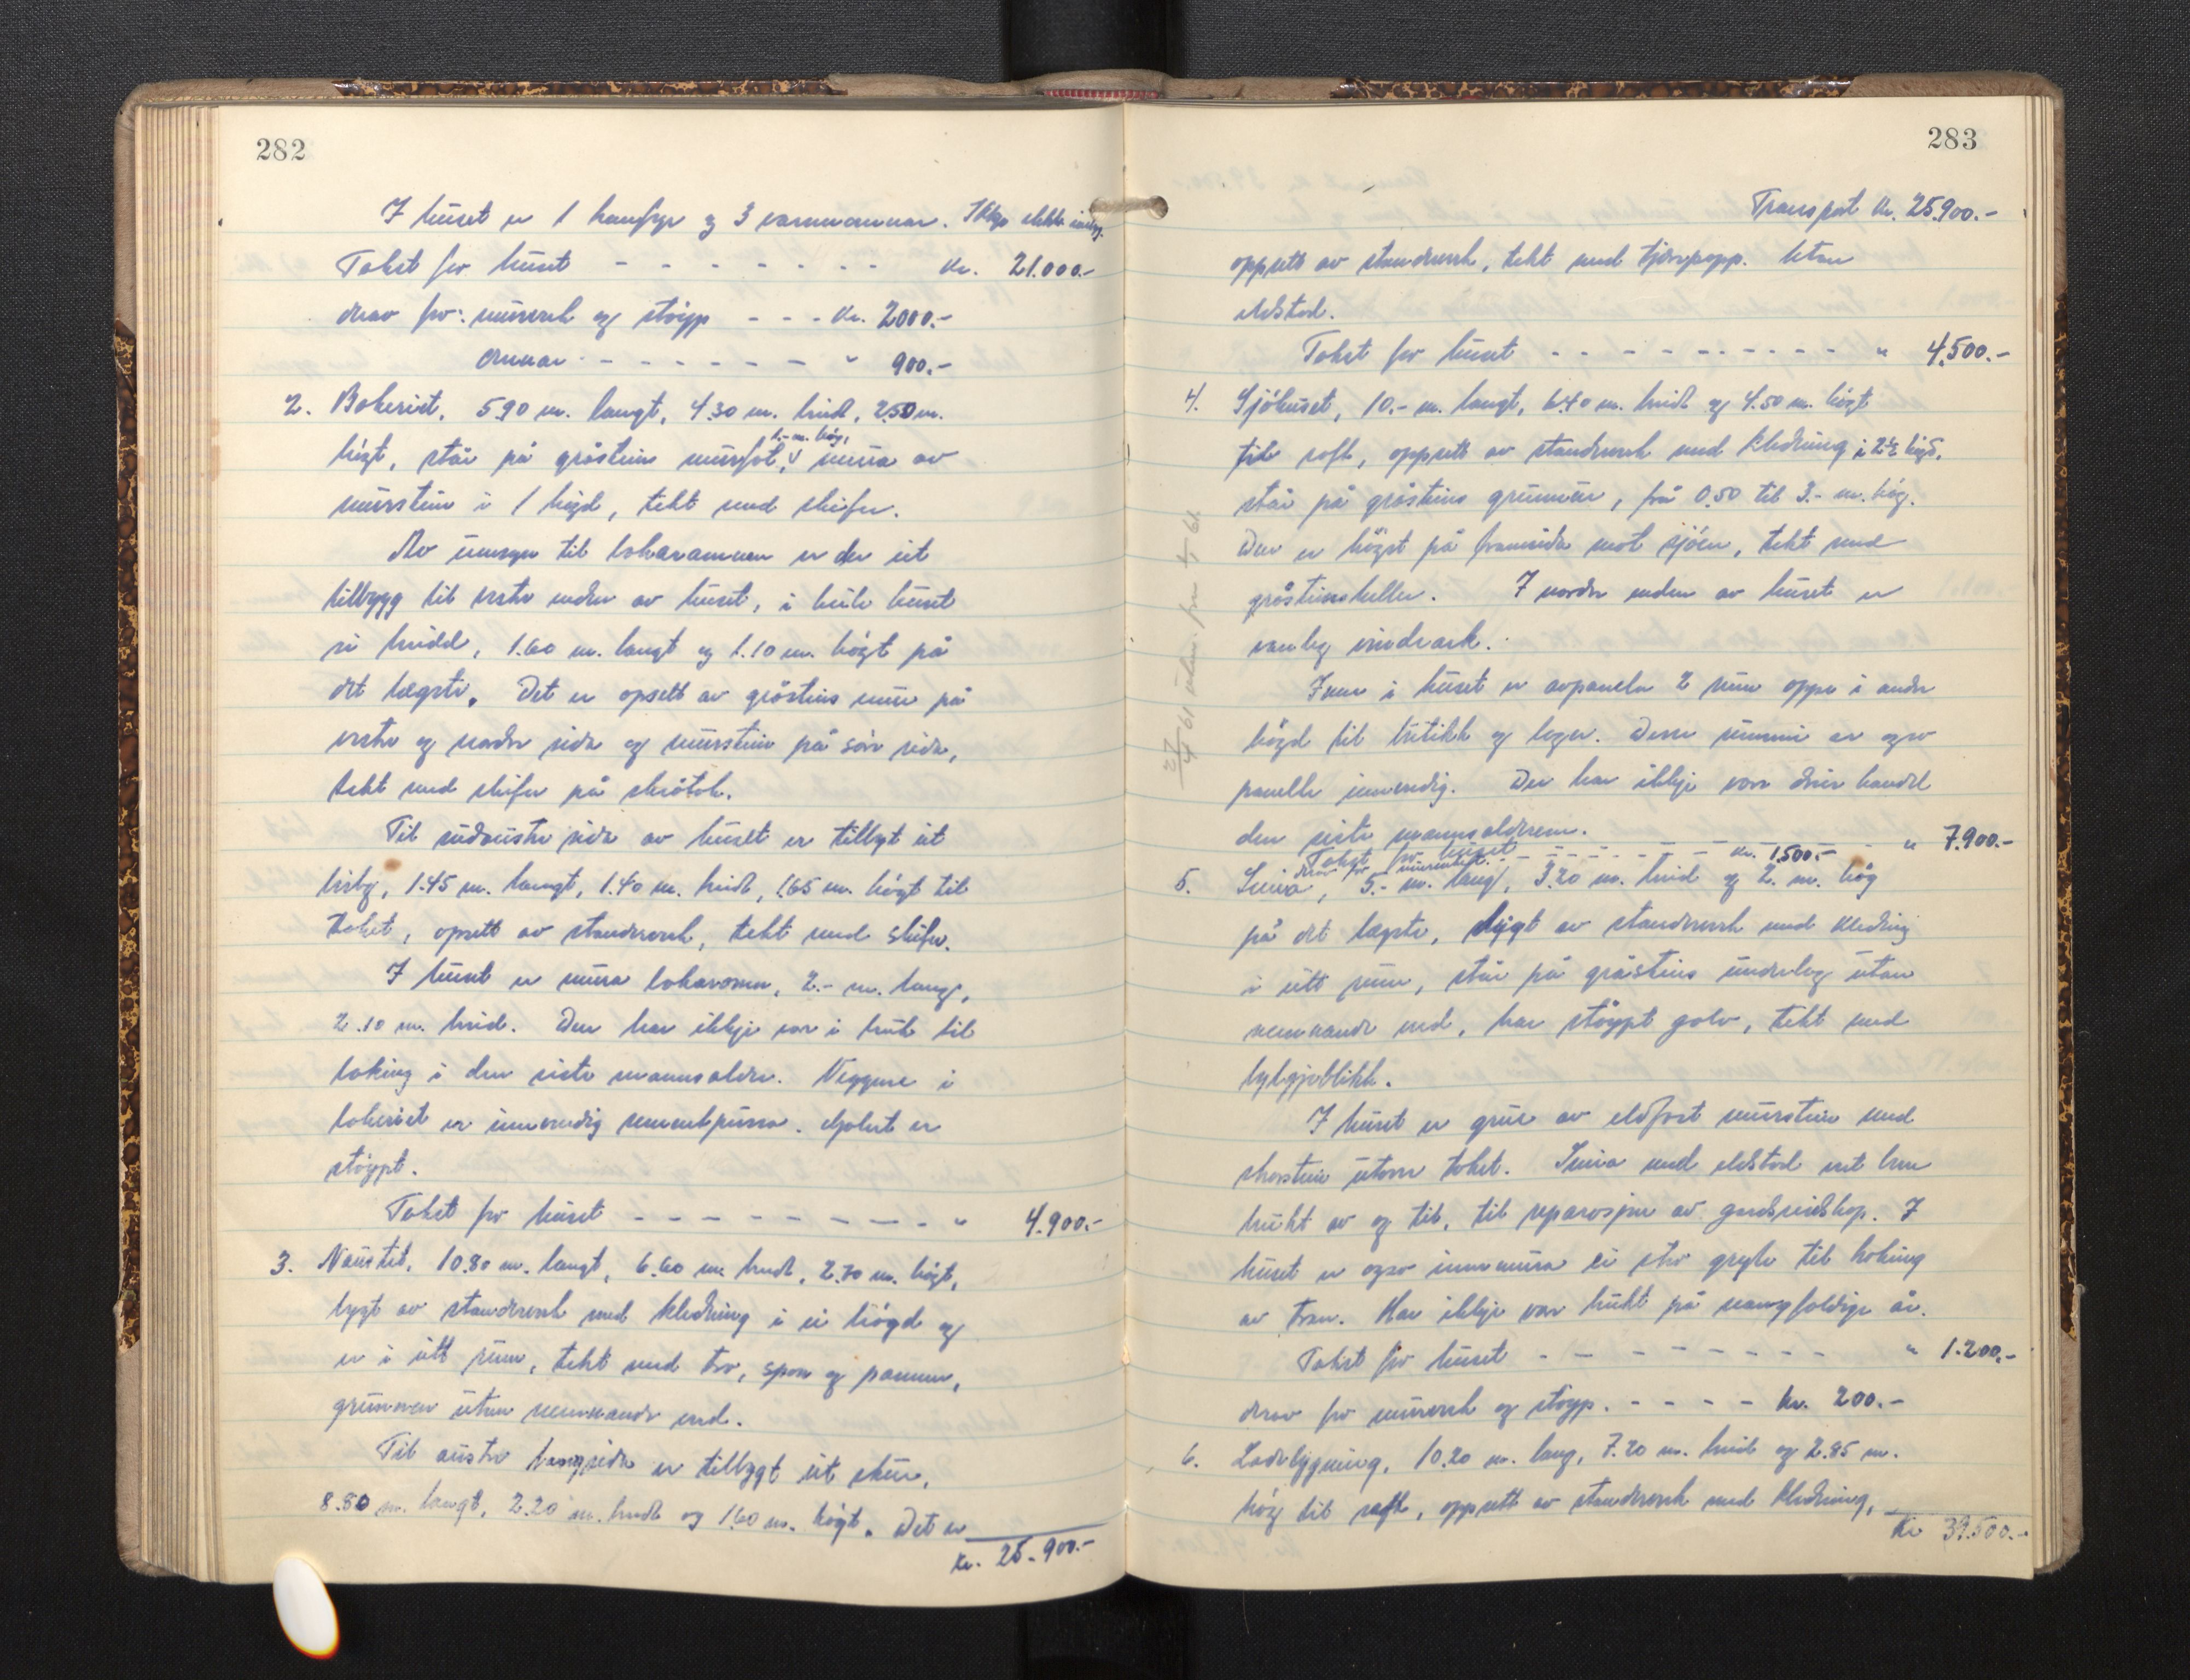 282
I huset er 1 komfyr og 3 varmeomnar. Ikkje elektr. innlegg.
Takst for huset - - - - - - - - kr. 21.000.-
derav for: murverk og støyp - - - kr. 2000.-
omnar - - - - - - - " 900.-
2. Bakeriet, 5.90 m. langt, 4.30 m. breidt, 2.50 m.
1.- m. høg,
høgt, står på gråsteins murfot, mura av
murstein i 1 høgd, tekt med skifer.
Av umsyn til bakaromnen er der eit
tilbygg til vestre enden av huset, i heile huset
si breidd, 1.60 m. langt og 1.10 m. høgt på
det lægste. Det er opsett av gråsteins mur på
vestre og nordre sida og murstein på søre sida,
tekt med skifer på skråtak.
Til sudaustre sida av huset er tilbygt eit
bislag, 1.45 m. langt, 1.40 m. breidt, 1.65 m. høgt til
taket, opsett av standverk, tekt med skifer.
I huset er mura bakaromn, 2.- m. lang,
2.10 m. breid. Den har ikkje vore i bruk til
baking i den siste mannsalder. Veggene i
bakeriet er innvendig sementpussa. Golvet er
støypt.
Takst for huset - - - - - - - - - - " 4.900.-
3. Naustet, 10.80 m. langt, 6.60 m. breidt, 2.70 m. høgt,
bygt av standverk med kledning i ei høgd og
er i eitt rum, tekt med tro, spon og pannur,
grunnen utan nemnande verd.
Til austre langsida er tilbygt eit skur,
8.80 m. langt, 2.20 m. breidt og 1.60 m. høgt. Det er
kr. 25.900.-
283
Transport kr. 25.900.-
oppsett av standverk, tekt med tjørepapp. Utan
eldstad.
Takst for huset - - - - - - - - - - - " 4.500.-
4. Sjøhuset, 10.- m. langt, 6.40 m. breidt og 4.50 m. høgt
til raft, oppsett av standverk med kledning i 2½ høgd.
står på gråsteins grunnmur, frå 0.50 til 3.- m. høg.
Den er høgst på framsida mot sjøen, tekt med
gråsteinsheller. I nordre enden av huset er
vanleg vindeark.
Inne i huset er avpanela 2 rum oppe i andre
høgd til butikk og lager. Desse rummi er ogso
panelte innvendig. Der har ikkje vore drive handel
den siste mannsalderen.
Takst for huset - - - - - - - - - " 7.900.-
derav for murarbeid. - - - - - - - kr. 1.500.-
5. Smia, 5.- m. lang, 3.20 m. breid og 2. m. høg
på det lægste, bygt av standverk med kledning
i eitt rum, står på gråsteins underlag utan
nemnande verd, har støypt golv, tekt med
bylgjeblikk.
I huset er grue av eldfast murstein med
skorstein utover taket. Smia med eldstad vert berre
brukt av og til, til reparasjon av gardsreidskap. I
huset er ogso innmura ei stor gryte til koking
av tran. Har ikkje vore brukt på mangfoldige år.
Takst for huset - - - - - - - - - " 1.200.-
derav for murverk og støyp. - - - - kr. 200.-
6. Ladebygning, 10.20 m. lang, 7.20 m. breid og 2.85 m.
høg til raft, oppsett av standverk med kledning,
kr 39.500.-
27/4 61